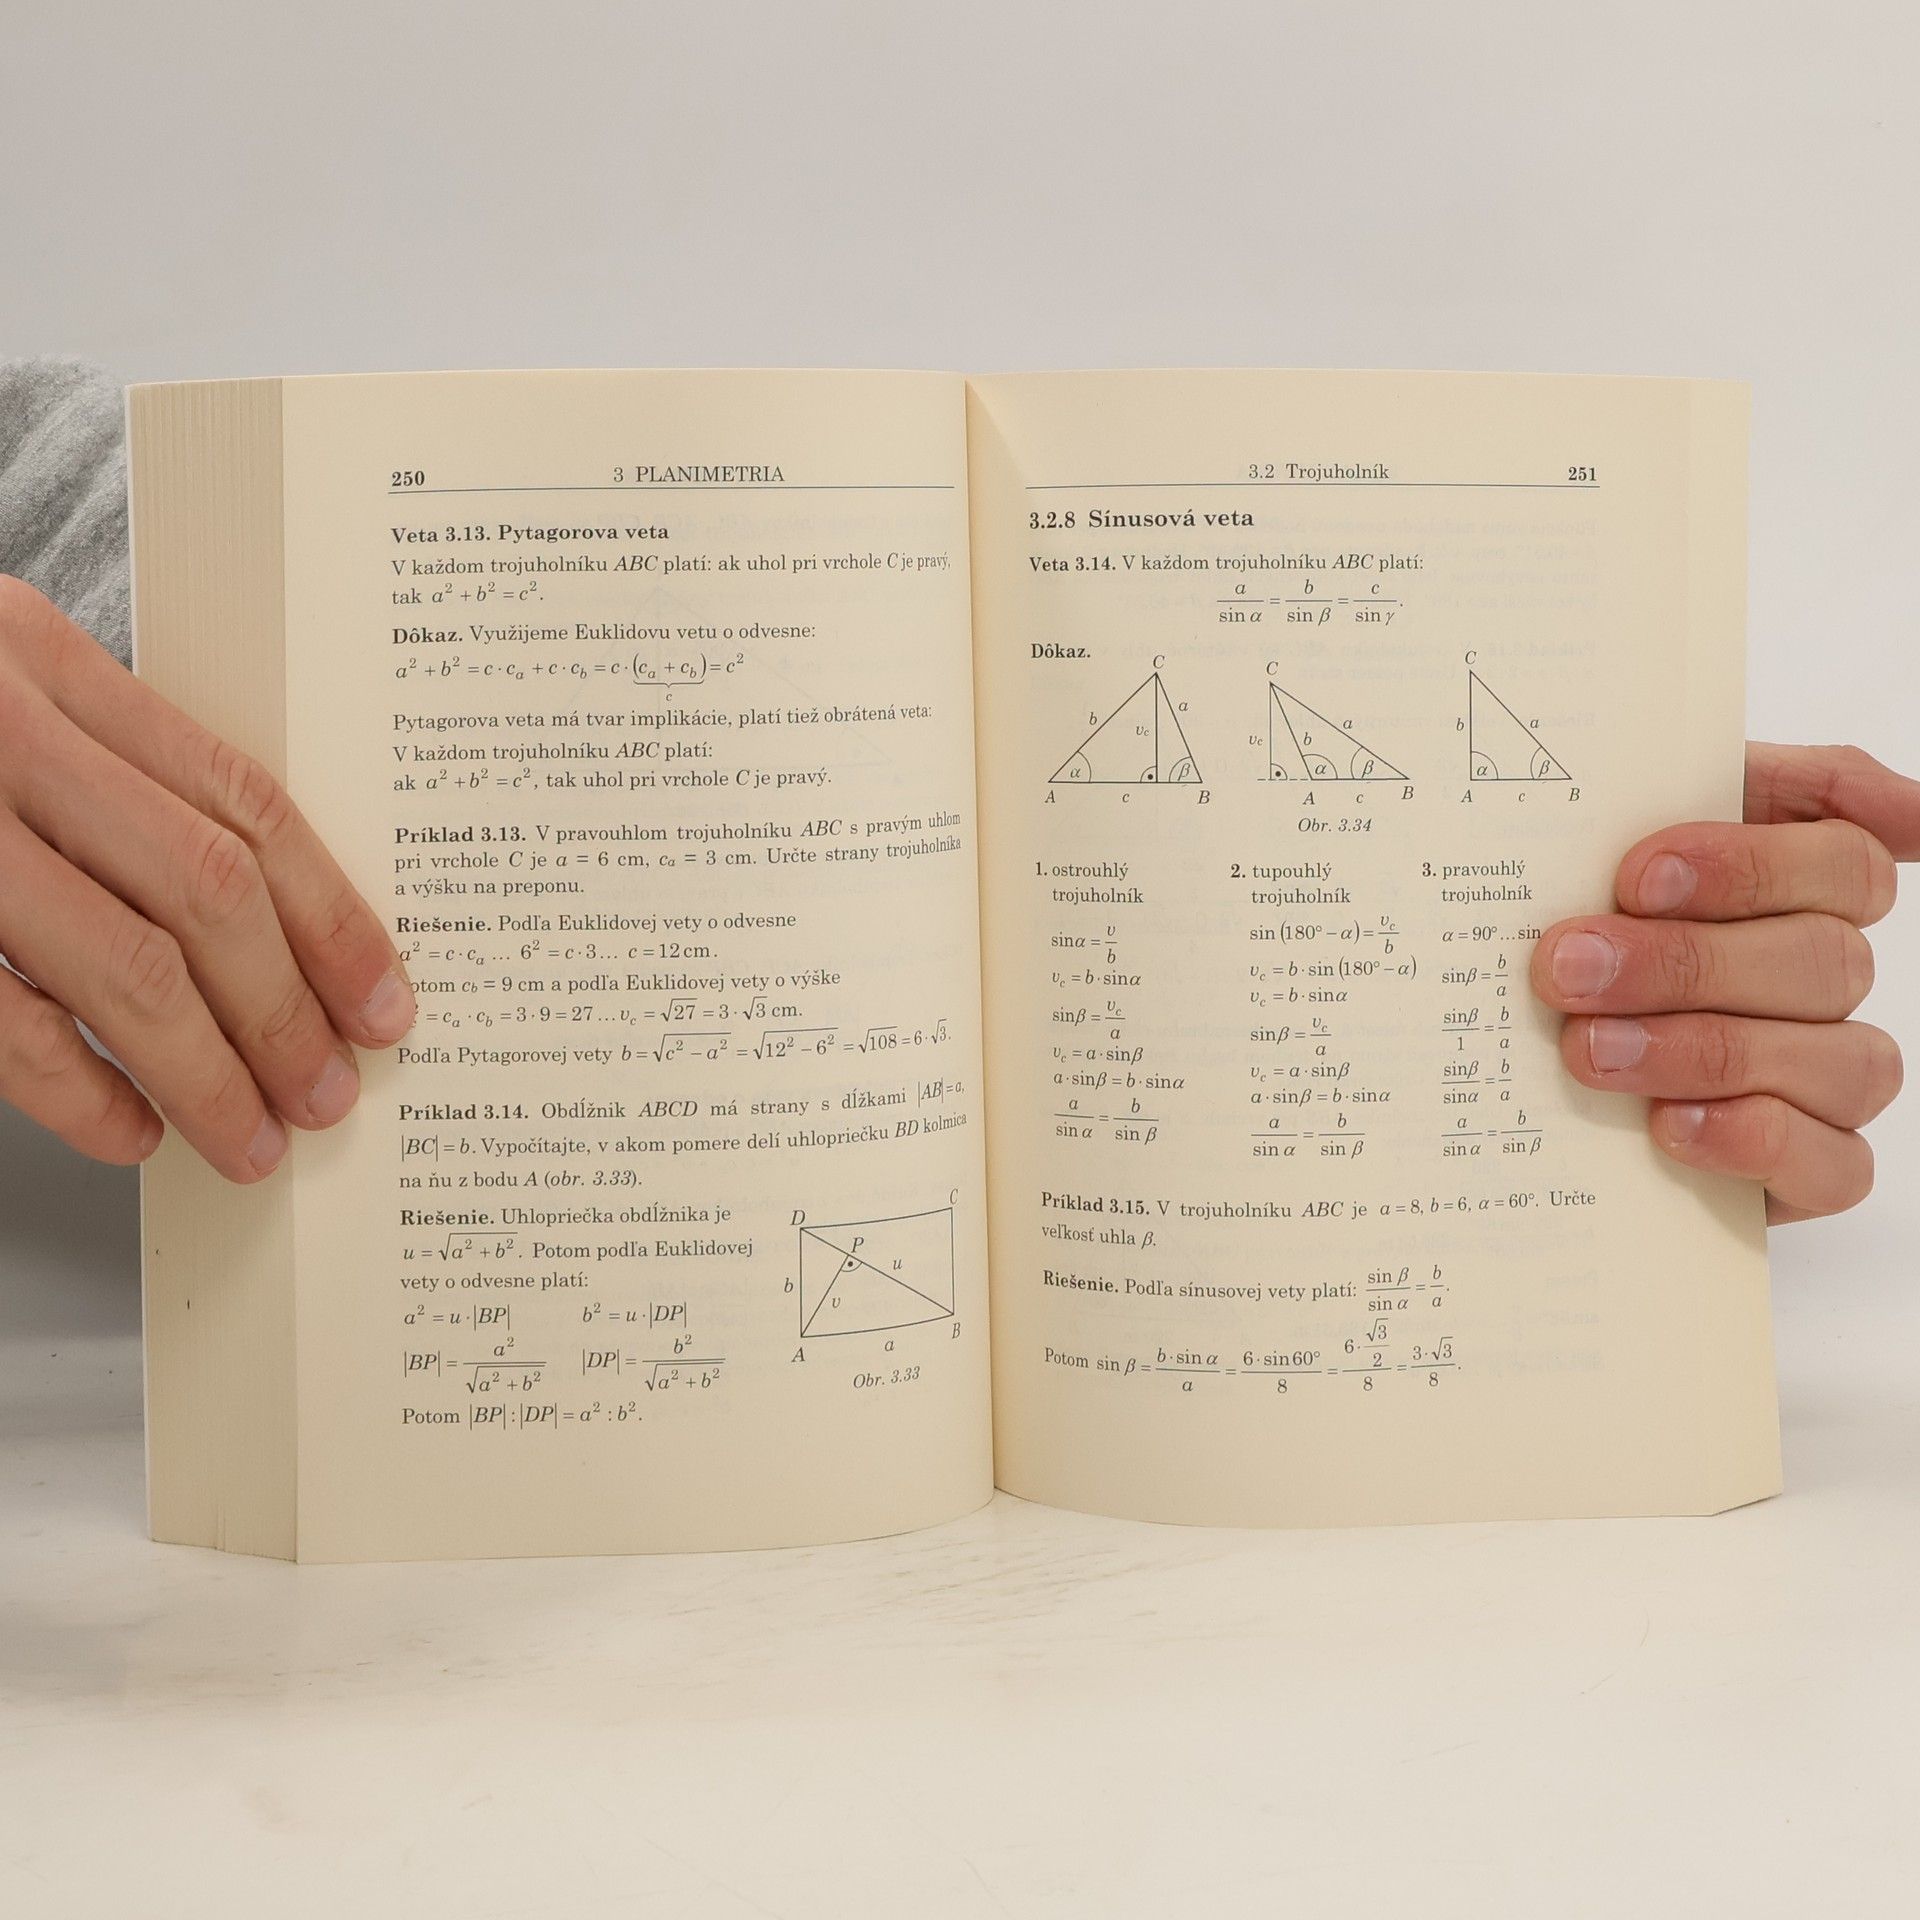 250 3 PLANIMETRIA
Veta 3.13. Pytagorova veta
V každom trojuholníku ABC platí: ak uhol pri vrchole C je pravý,
tak a² + b² = c².
Dôkaz. Využijeme Euklidovu vetu o odvesne:
a² + b² = c · cₐ + c · c_b = c · (cₐ + c_b) = c²
c
Pytagorova veta má tvar implikácie, platí tiež obrátená veta:
V každom trojuholníku ABC platí:
ak a² + b² = c², tak uhol pri vrchole C je pravý.
Príklad 3.13. V pravouhlom trojuholníku ABC s pravým uhlom
pri vrchole C je a = 6 cm, cₐ = 3 cm. Určte strany trojuholníka
a výšku na preponu.
Riešenie. Podľa Euklidovej vety o odvesne
a² = c · cₐ ... 6² = c · 3 ... c = 12 cm.
c_b = 9 cm a podľa Euklidovej vety o výške
= cₐ · c_b = 3 · 9 = 27 ... v_c = √27 = 3 · √3 cm.
Podľa Pytagorovej vety b = √(c² − a²) = √(12² − 6²) = √108 = 6 · √3.
Príklad 3.14. Obdĺžnik ABCD má strany s dĺžkami |AB| = a,
|BC| = b. Vypočítajte, v akom pomere delí uhlopriečku BD kolmica
na ňu z bodu A (obr. 3.33).
Riešenie. Uhlopriečka obdĺžnika je
u = √(a² + b²). Potom podľa Euklidovej
vety o odvesne platí:
a² = u · |BP| b² = u · |DP|
|BP| = a²/√(a² + b²) |DP| = b²/√(a² + b²)
Potom |BP| : |DP| = a² : b².
D C
P
b u
v
A a B
Obr. 3.33
3.2 Trojuholník 251
3.2.8 Sínusová veta
Veta 3.14. V každom trojuholníku ABC platí:
a/sin α = b/sin β = c/sin γ.
Dôkaz.
C
b a
v_c
α β
A c B
C
v_c b a
α β
A c B
C
b a
α β
A c B
Obr. 3.34
1. ostrouhlý
trojuholník
sinα = v/b
v_c = b · sinα
sinβ = v_c/a
v_c = a · sinβ
a · sinβ = b · sinα
a/sin α = b/sin β
2. tupouhlý
trojuholník
sin (180° − α) = v_c/b
v_c = b · sin (180° − α)
v_c = b · sinα
sinβ = v_c/a
v_c = a · sinβ
a · sinβ = b · sinα
a/sin α = b/sin β
3. pravouhlý
trojuholník
α = 90° ... sin
sinβ = b/a
sinβ/1 = b/a
sinβ/sinα = b/a
a/sin α = b/sin β
Príklad 3.15. V trojuholníku ABC je a = 8, b = 6, α = 60°. Určte
veľkosť uhla β.
Riešenie. Podľa sínusovej vety platí: sin β/sin α = b/a.
Potom sin β = b · sin α/a = 6 · sin 60°/8 = 6 · (√3/2)/8 = 3 · √3/8.